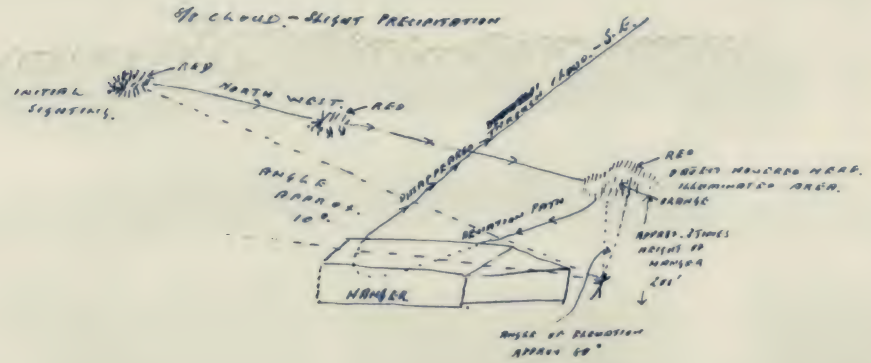 8/8 CLOUD - SLIGHT PRECIPITATION
RED
INITIAL
SIGHTING.
NORTH WEST.
RED
DISAPPEARED THROUGH CLOUD. - S.E.
RED
OBJECT HOVERED HERE.
ILLUMINATED AREA.
ORANGE
ANGLE
APPROX.
10°.
DEVIATION PATH
APPROX.
HEIGHT OF
HANGER
200'
HANGER
ANGLE OF ELEVATION
APPROX 60°